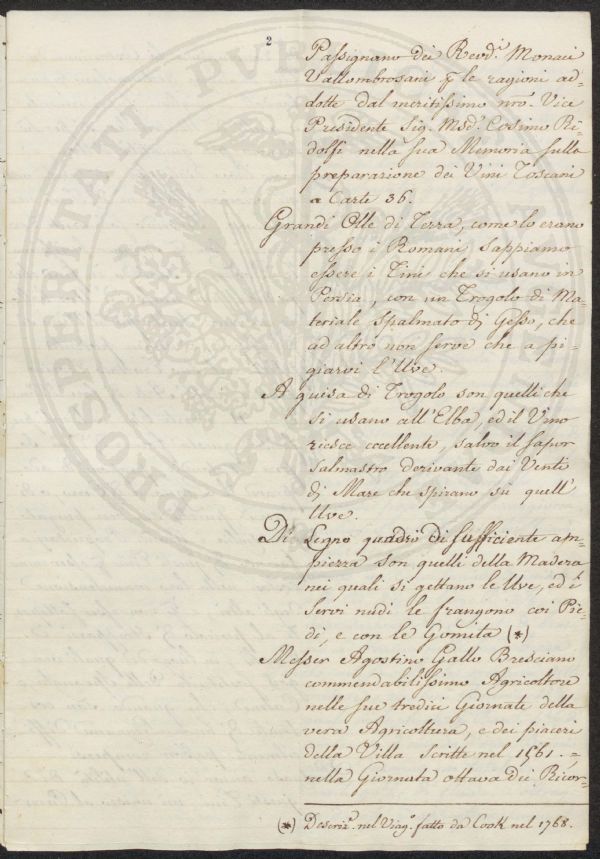 2
Passignano dei Revd.i Monaci
Vallombrosani p le ragioni ad=
dotte dal meritissimo nro. Vice
Presidente Sig. Msẽ. Cosimo Ri=
dolfi nella sua Memoria sulla
preparazione dei Vini Toscani
a Carte 36.
Grandi Olle di Terra, come lo erano
presso i Romani sappiamo
essere i Tini che si usano in
Persia, con un Trogolo di Ma=
teriale spalmato di Gesso, che
ad altro non serve che a pi=
giarvi l'Uve.
A guisa di Trogolo son quelli che
si usano all'Elba, ed il Vino
riesce eccellente, salvo il sapor
salmastro derivante dai Venti
di Mare che spirano su quell'
Uve.
Di Legno quadro di sufficiente am=
piezza son quelli della Madera
nei quali si gettano le Uve, ed i
Servi nudi le frangono coi Pie=
di, e con le Gomita (*)
Messer Agostino Gallo Bresciano
commendabilissimo Agricoltore
nelle sue tredici Giornate della
vera Agricoltura, e dei piaceri
della Villa scritte nel 1561. =
nella Giornata ottava dei Ricor=
(*) Descriz.e nel Viag.o fatto da Cook nel 1768.
PROSPERITATI PUBLICAE